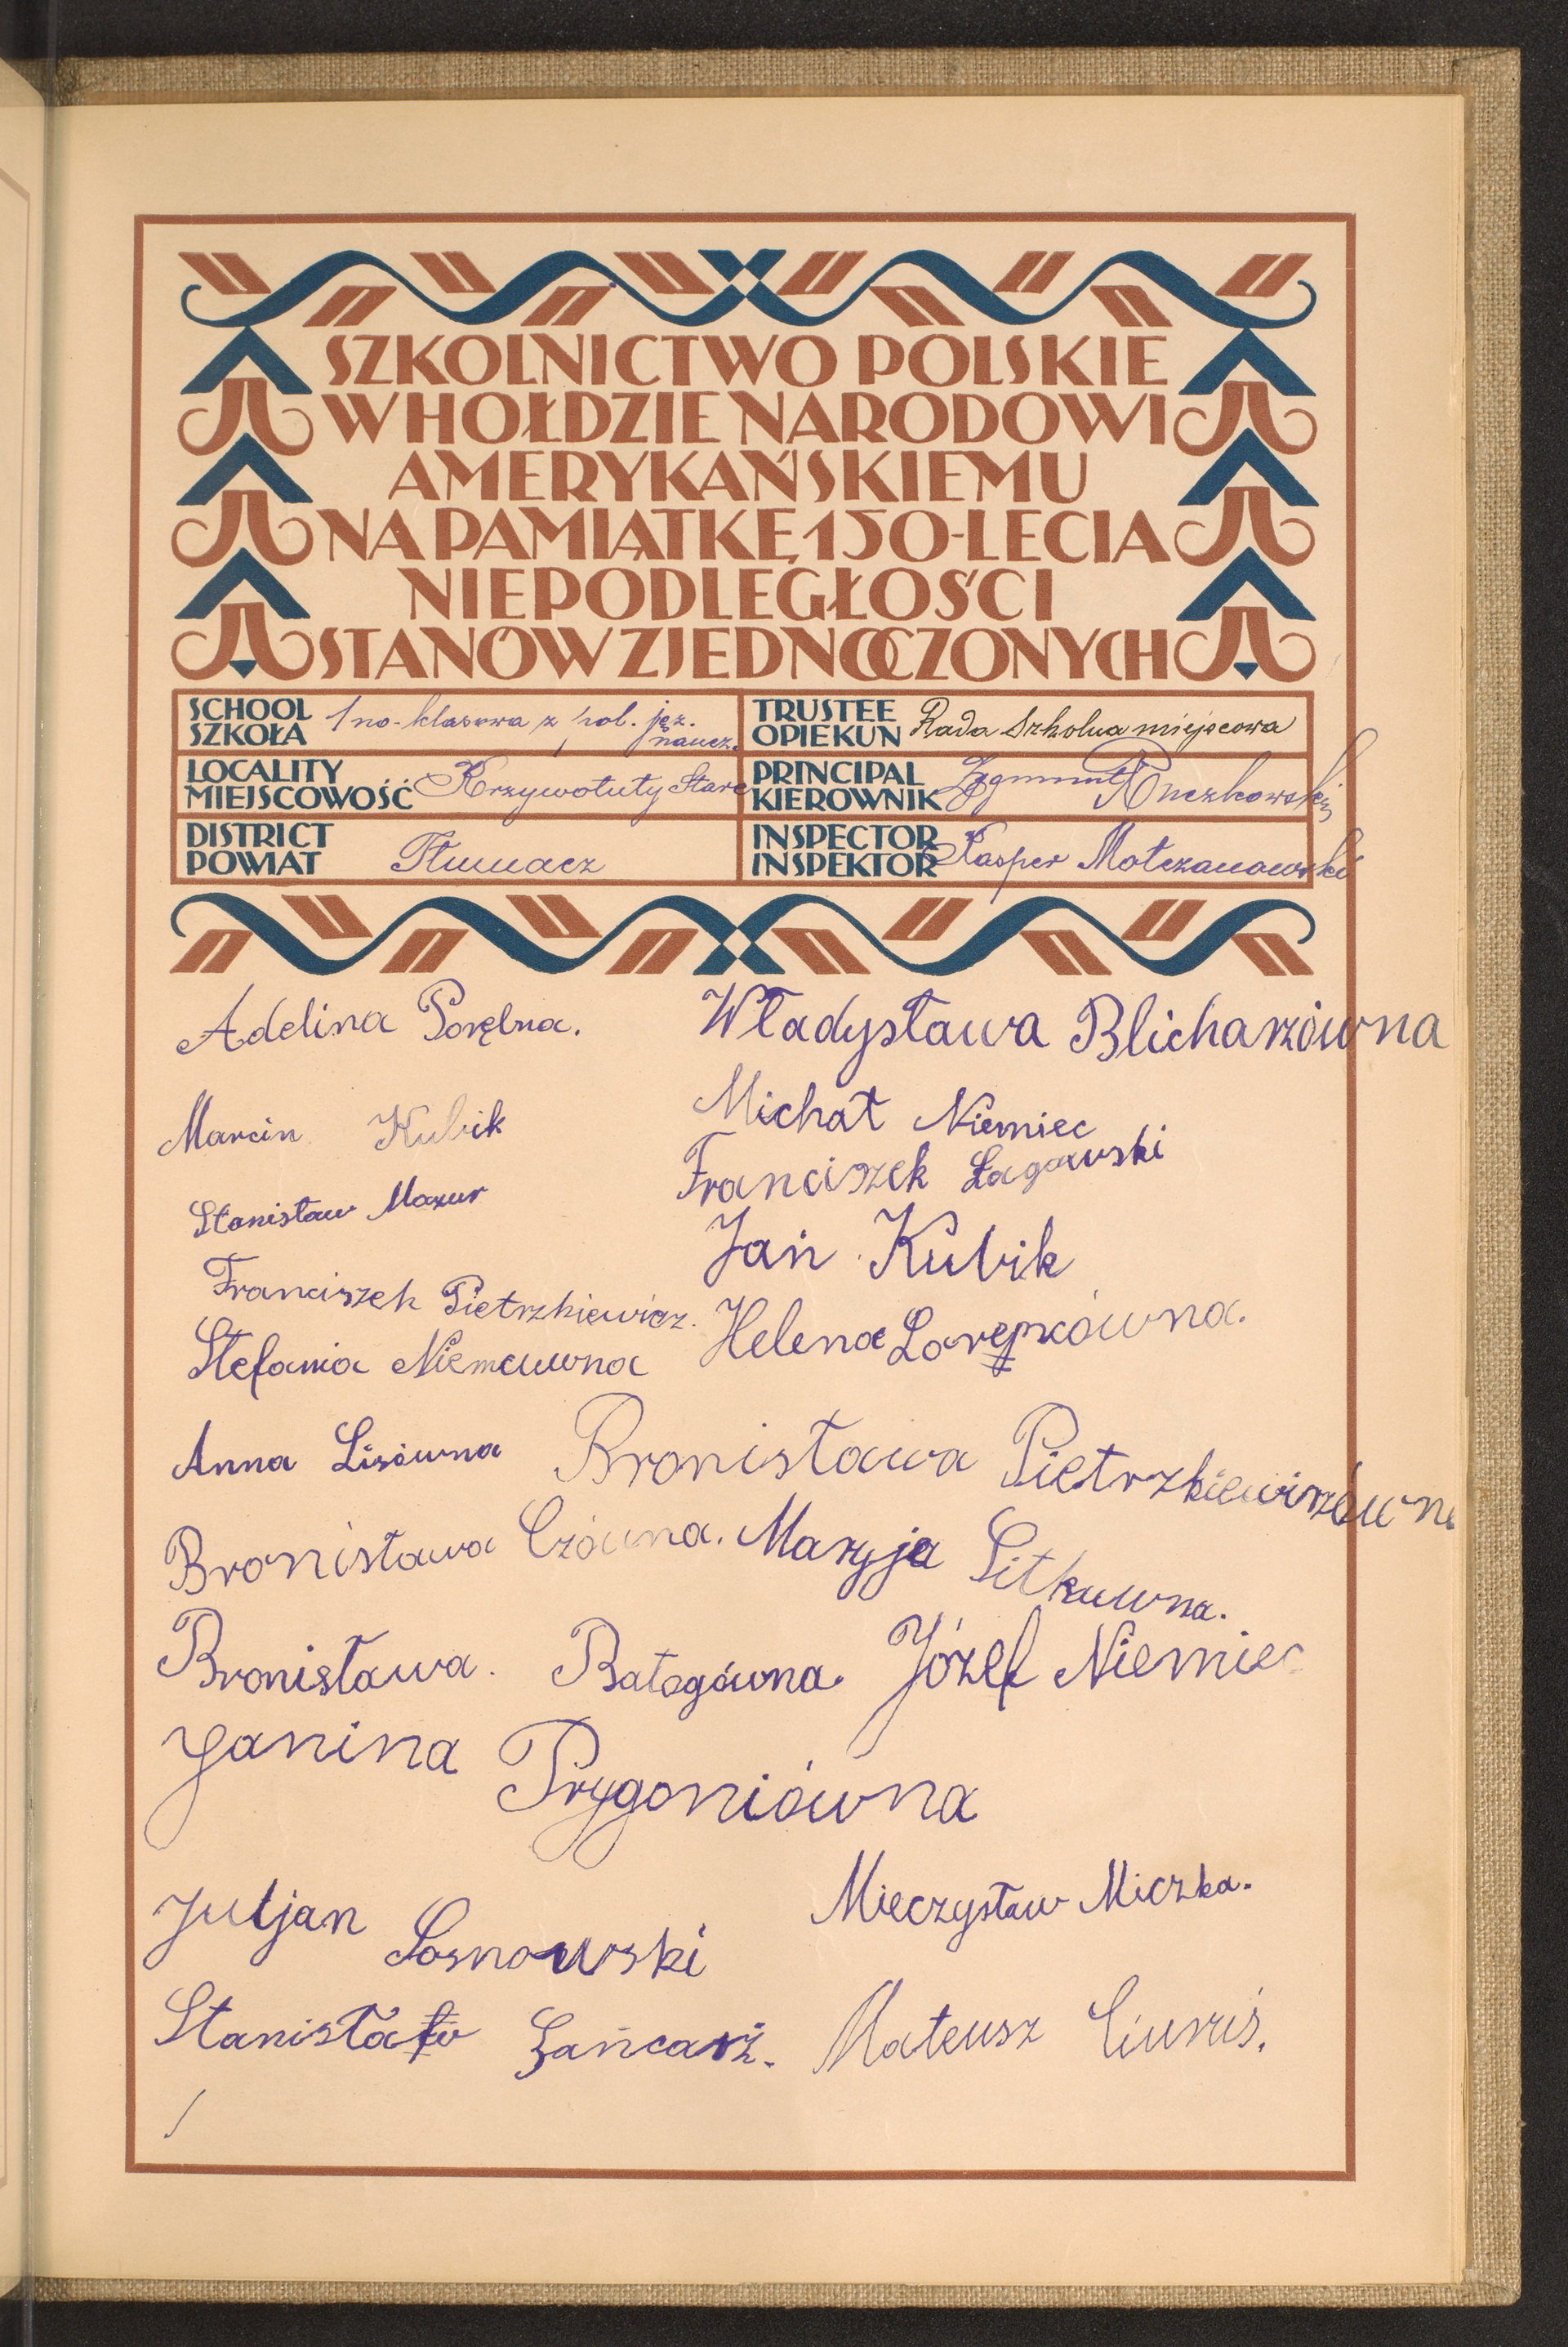 SZKOLNICTWO POLSKIE
W HOŁDZIE NARODOWI
AMERYKAŃSKIEMU
NA PAMIĄTKĘ 150-LECIA
NIEPODLEGŁOŚCI
STANÓW ZJEDNOCZONYCH
SCHOOL
SZKOŁA
1no-klasowa z pol. jęz.
naucz.
TRUSTEE
OPIEKUN
Rada Szkolna miejscowa
LOCALITY
MIEJSCOWOŚĆ
Krzywotuły Stare
PRINCIPAL
KIEROWNIK
Zygmunt Ruczkowski
DISTRICT
POWIAT
Tłumacz
INSPECTOR
INSPEKTOR
Kasper Mołczanowski
Adelina Porębna.
Władysława Blicharzówna
Marcin Kubik
Michał Niemiec
Stanisław Mazur
Franciszek Łagowski
Jan Kubik
Franciszek Pietrzkiewicz.
Helena
Stefania
Anna Lisówna
Bronisława
Bronisława Czówna.
Maryja Sitkuwna.
Bronisława. Batogówna.
Józef Niemiec
Janina Prygoniówna
Juljan Sosnowski
Mieczysław Miczka.
Stanisław
Mateusz